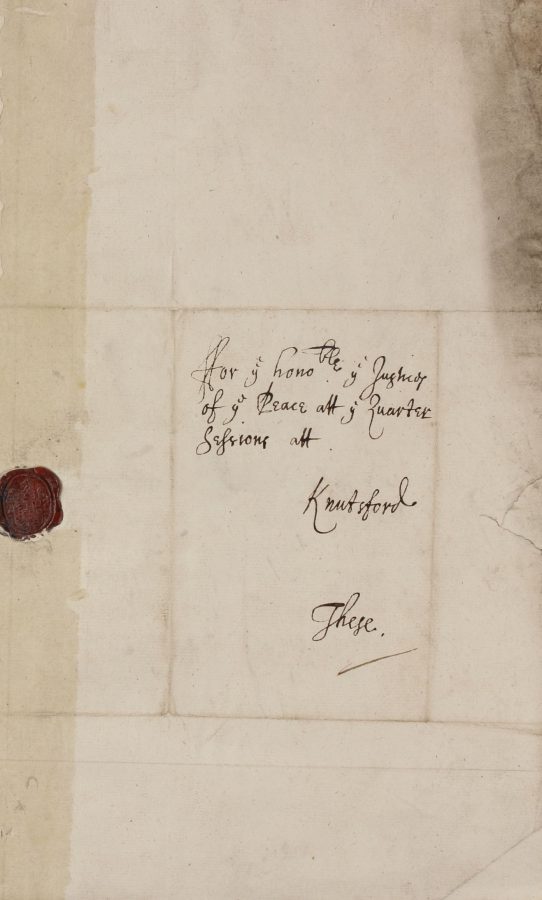 ffor yͤ honoᵇˡᵉ yͤ Justices
of yͤ Peace att yͤ Quarter
Sessions att
Knutsford
These.